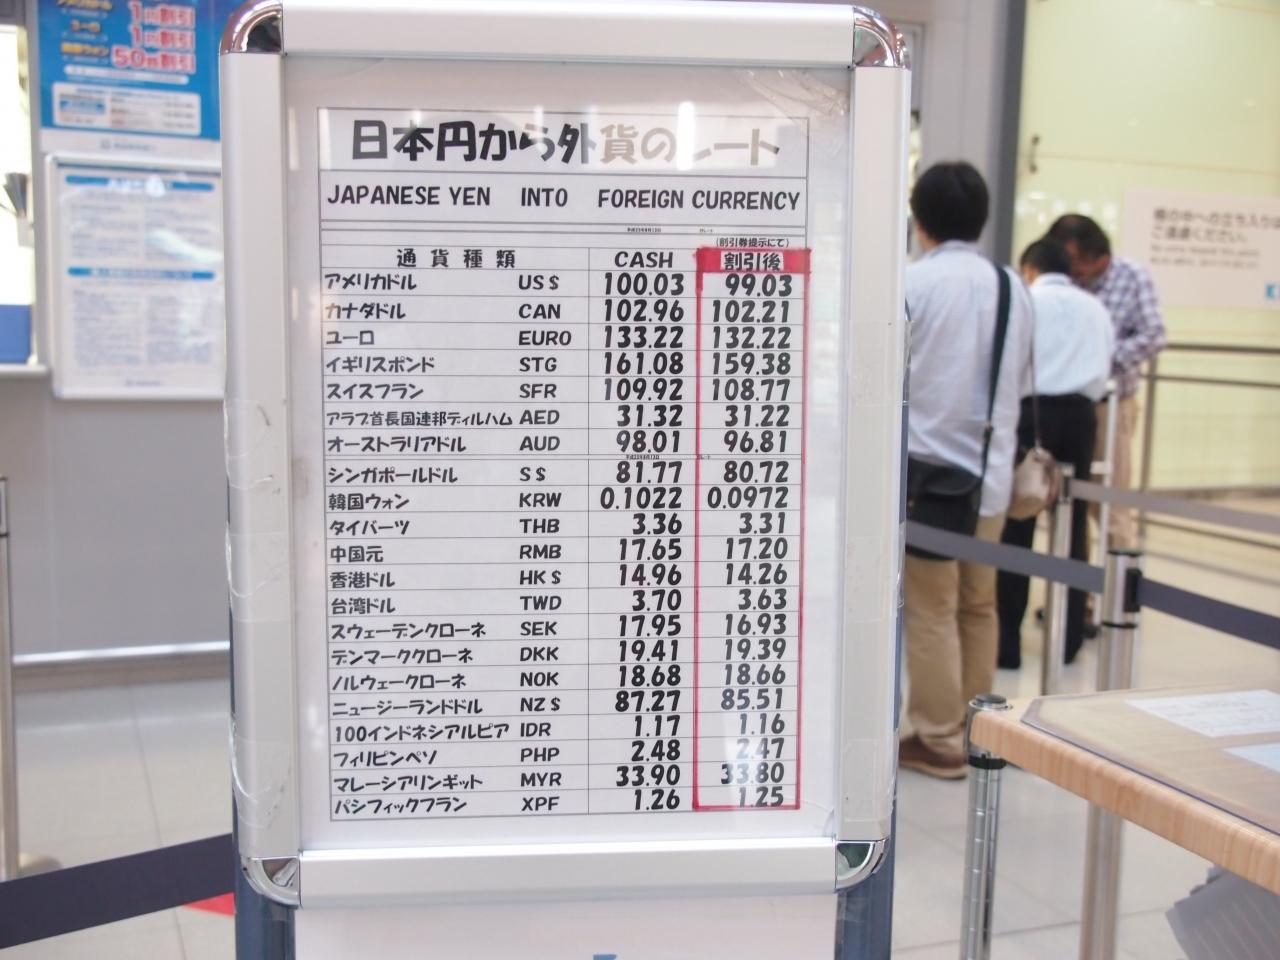 アメリカドル 1円割引
ユーロ 1円割引
韓国ウォン 50銭割引
日本円から外貨のレート
JAPANESE YEN INTO FOREIGN CURRENCY
(割引券提示にて)
通貨種類 CASH 割引後
アメリカドル US$ 100.03 99.03
カナダドル CAN 102.96 102.21
ユーロ EURO 133.22 132.22
イギリスポンド STG 161.08 159.38
スイスフラン SFR 109.92 108.77
アラブ首長国連邦ディルハム AED 31.32 31.22
オーストラリアドル AUD 98.01 96.81
シンガポールドル S$ 81.77 80.72
韓国ウォン KRW 0.1022 0.0972
タイバーツ THB 3.36 3.31
中国元 RMB 17.65 17.20
香港ドル HK$ 14.96 14.26
台湾ドル TWD 3.70 3.63
スウェーデンクローネ SEK 17.95 16.93
デンマーククローネ DKK 19.41 19.39
ノルウェークローネ NOK 18.68 18.66
ニュージーランドドル NZ$ 87.27 85.51
100インドネシアルピア IDR 1.17 1.16
フィリピンペソ PHP 2.48 2.47
マレーシアリンギット MYR 33.90 33.80
パシフィックフラン XPF 1.26 1.25
柵の中への立ち入りは
ご遠慮ください。